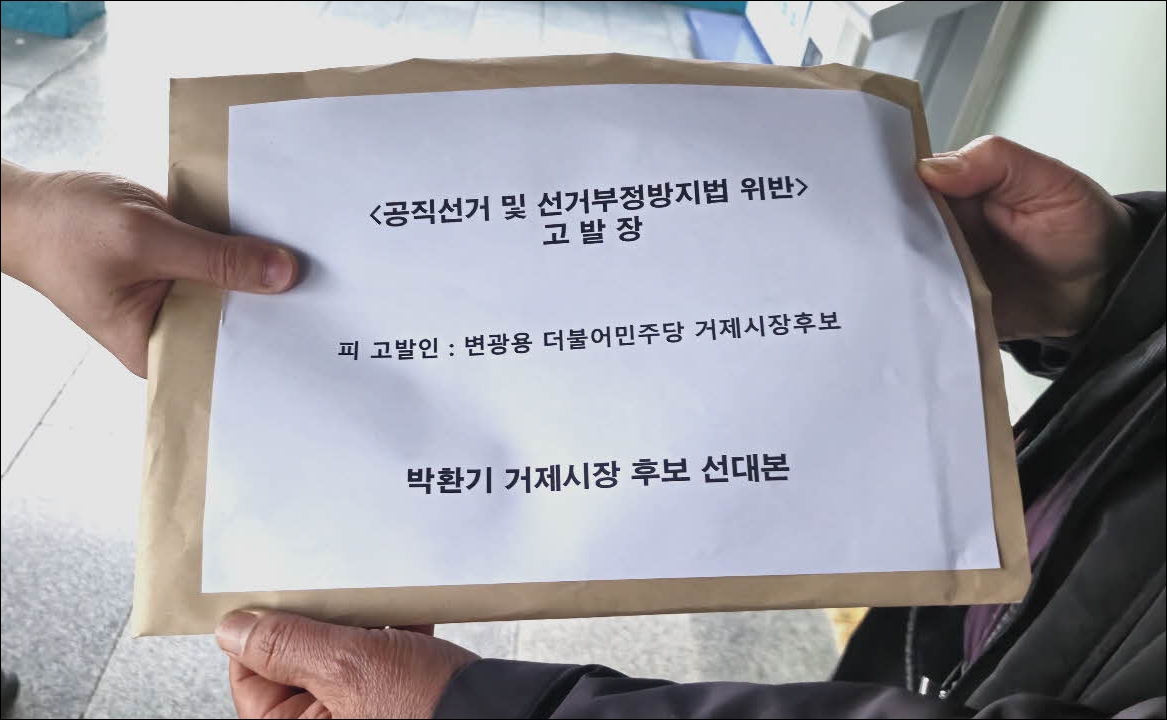 <공직선거 및 선거부정방지법 위반>
고 발 장
피 고발인 : 변광용 더불어민주당 거제시장후보
박환기 거제시장 후보 선대본